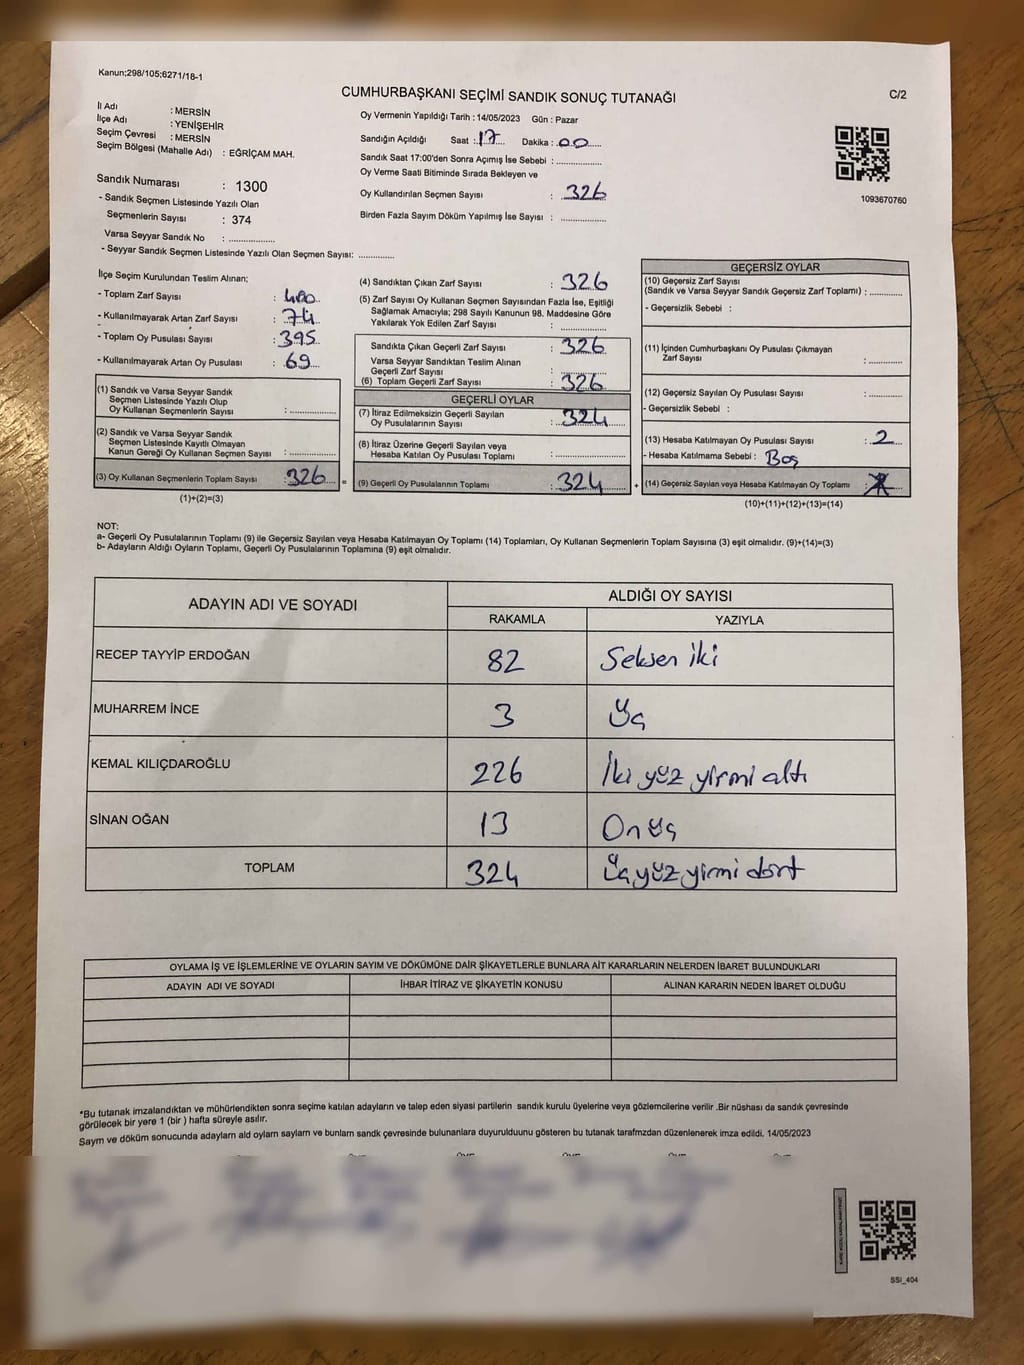 Kanun;298/105;6271/18-1
CUMHURBAŞKANI SEÇİMİ SANDIK SONUÇ TUTANAĞI
C/2
İl Adı : MERSİN
İlçe Adı : YENİŞEHİR
Seçim Çevresi : MERSİN
Seçim Bölgesi (Mahalle Adı) : EĞRİÇAM MAH.
Sandık Numarası : 1300
- Sandık Seçmen Listesinde Yazılı Olan
Seçmenlerin Sayısı : 374
Varsa Seyyar Sandık No : ..................
- Seyyar Sandık Seçmen Listesinde Yazılı Olan Seçmen Sayısı: ..............
Oy Vermenin Yapıldığı Tarih : 14/05/2023 Gün : Pazar
Sandığın Açıldığı Saat : 17 Dakika : 00
Sandık Saat 17:00'den Sonra Açımış İse Sebebi : ..................
Oy Verme Saati Bitiminde Sırada Bekleyen ve
Oy Kullandırılan Seçmen Sayısı : 326
Birden Fazla Sayım Döküm Yapılmış İse Sayısı : ..................
1093670760
İlçe Seçim Kurulundan Teslim Alınan;
- Toplam Zarf Sayısı : 400
- Kullanılmayarak Artan Zarf Sayısı : 74
- Toplam Oy Pusulası Sayısı : 395
- Kullanılmayarak Artan Oy Pusulası : 69
(1) Sandık ve Varsa Seyyar Sandık
Seçmen Listesinde Yazılı Olup
Oy Kullanan Seçmenlerin Sayısı : ..................
(2) Sandık ve Varsa Seyyar Sandık
Seçmen Listesinde Kayıtlı Olmayan
Kanun Gereği Oy Kullanan Seçmen Sayısı : ..................
(3) Oy Kullanan Seçmenlerin Toplam Sayısı : 326 =
(1)+(2)=(3)
(4) Sandıktan Çıkan Zarf Sayısı : 326
(5) Zarf Sayısı Oy Kullanan Seçmen Sayısından Fazla İse, Eşitliği
Sağlamak Amacıyla; 298 Sayılı Kanunun 98. Maddesine Göre
Yakılarak Yok Edilen Zarf Sayısı : ..................
Sandıkta Çıkan Geçerli Zarf Sayısı : 326
Varsa Seyyar Sandıktan Teslim Alınan
Geçerli Zarf Sayısı : ..................
(6) Toplam Geçerli Zarf Sayısı : 326
GEÇERLİ OYLAR
(7) İtiraz Edilmeksizin Geçerli Sayılan
Oy Pusulalarının Sayısı : 324
(8) İtiraz Üzerine Geçerli Sayılan veya
Hesaba Katılan Oy Pusulası Toplamı : ..................
(9) Geçerli Oy Pusulalarının Toplamı : 324 +
GEÇERSİZ OYLAR
(10) Geçersiz Zarf Sayısı
(Sandık ve Varsa Seyyar Sandık Geçersiz Zarf Toplamı) : ............
- Geçersizlik Sebebi :
(11) İçinden Cumhurbaşkanı Oy Pusulası Çıkmayan
Zarf Sayısı : ............
(12) Geçersiz Sayılan Oy Pusulası Sayısı : ............
- Geçersizlik Sebebi :
(13) Hesaba Katılmayan Oy Pusulası Sayısı : 2
- Hesaba Katılmama Sebebi : Boş
(14) Geçersiz Sayılan veya Hesaba Katılmayan Oy Toplamı :
(10)+(11)+(12)+(13)=(14)
NOT:
a- Geçerli Oy Pusulalarının Toplamı (9) ile Geçersiz Sayılan veya Hesaba Katılmayan Oy Toplamı (14) Toplamları, Oy Kullanan Seçmenlerin Toplam Sayısına (3) eşit olmalıdır. (9)+(14)=(3)
b- Adayların Aldığı Oyların Toplamı, Geçerli Oy Pusulalarının Toplamına (9) eşit olmalıdır.
ADAYIN ADI VE SOYADI
ALDIĞI OY SAYISI
RAKAMLA YAZIYLA
RECEP TAYYİP ERDOĞAN 82 Seksen iki
MUHARREM İNCE 3 Üç
KEMAL KILIÇDAROĞLU 226 İki yüz yirmi altı
SİNAN OĞAN 13 On üç
TOPLAM 324 Üç yüz yirmi dört
OYLAMA İŞ VE İŞLEMLERİNE VE OYLARIN SAYIM VE DÖKÜMÜNE DAİR ŞİKAYETLERLE BUNLARA AİT KARARLARIN NELERDEN İBARET BULUNDUKLARI
ADAYIN ADI VE SOYADI İHBAR İTİRAZ VE ŞİKAYETİN KONUSU ALINAN KARARIN NEDEN İBARET OLDUĞU
*Bu tutanak imzalandıktan ve mühürlendikten sonra seçime katılan adayların ve talep eden siyasi partilerin sandık kurulu üyelerine veya gözlemcilerine verilir .Bir nüshası da sandık çevresinde
görülecek bir yere 1 (bir ) hafta süreyle asılır.
Saym ve döküm sonucunda adaylarn ald oylarn saylarn ve bunlarn sandk çevresinde bulunanlara duyurulduunu gösteren bu tutanak tarafmzdan düzenlenerek imza edildi. 14/05/2023
SSI_404